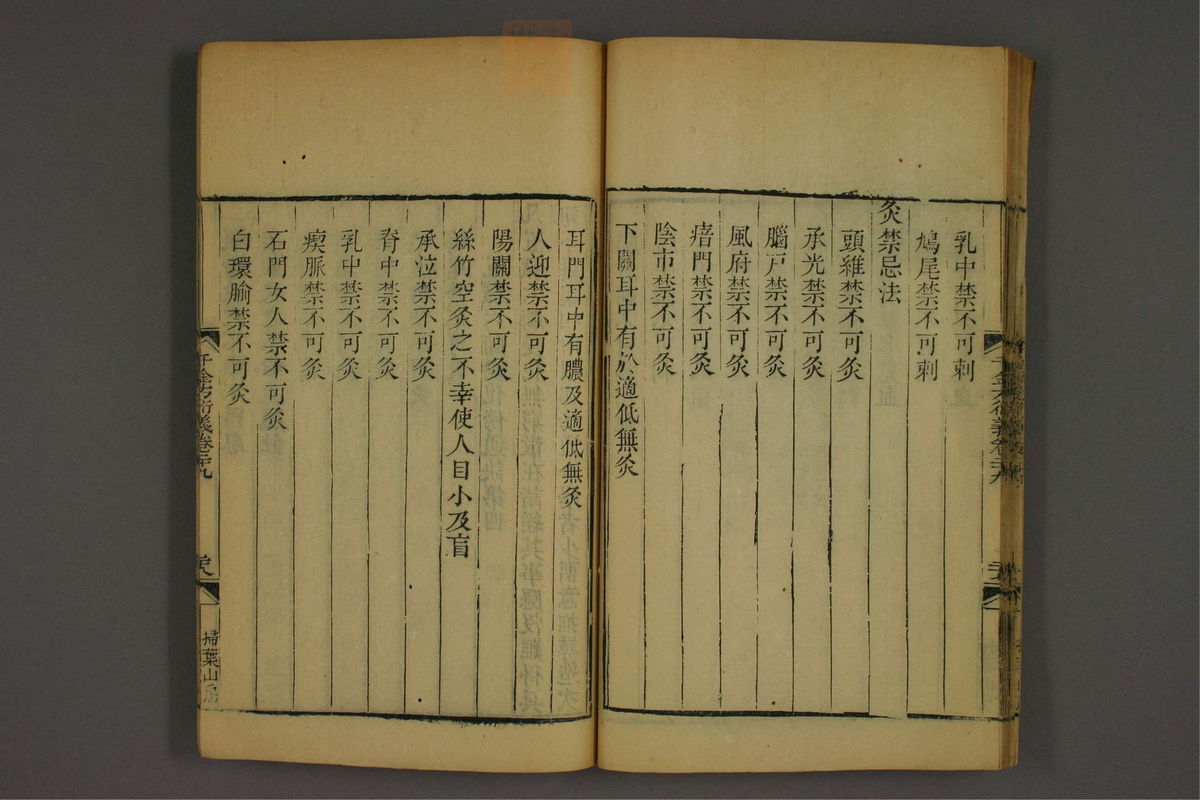 乳中禁不可刺
鳩尾禁不可刺
灸禁忌法
頭維禁不可灸
承光禁不可灸
腦戸禁不可灸
風府禁不可灸
瘖門禁不可灸
陰市禁不可灸
下關耳中有於適低無灸
耳門耳中有膿及適低無灸
人迎禁不可灸
陽關禁不可灸
絲竹空灸之不幸使人目小及盲
承泣禁不可灸
脊中禁不可灸
乳中禁不可灸
瘈脈禁不可灸
石門女人禁不可灸
白環腧禁不可灸
千金方衍義卷二十九
掃葉山房